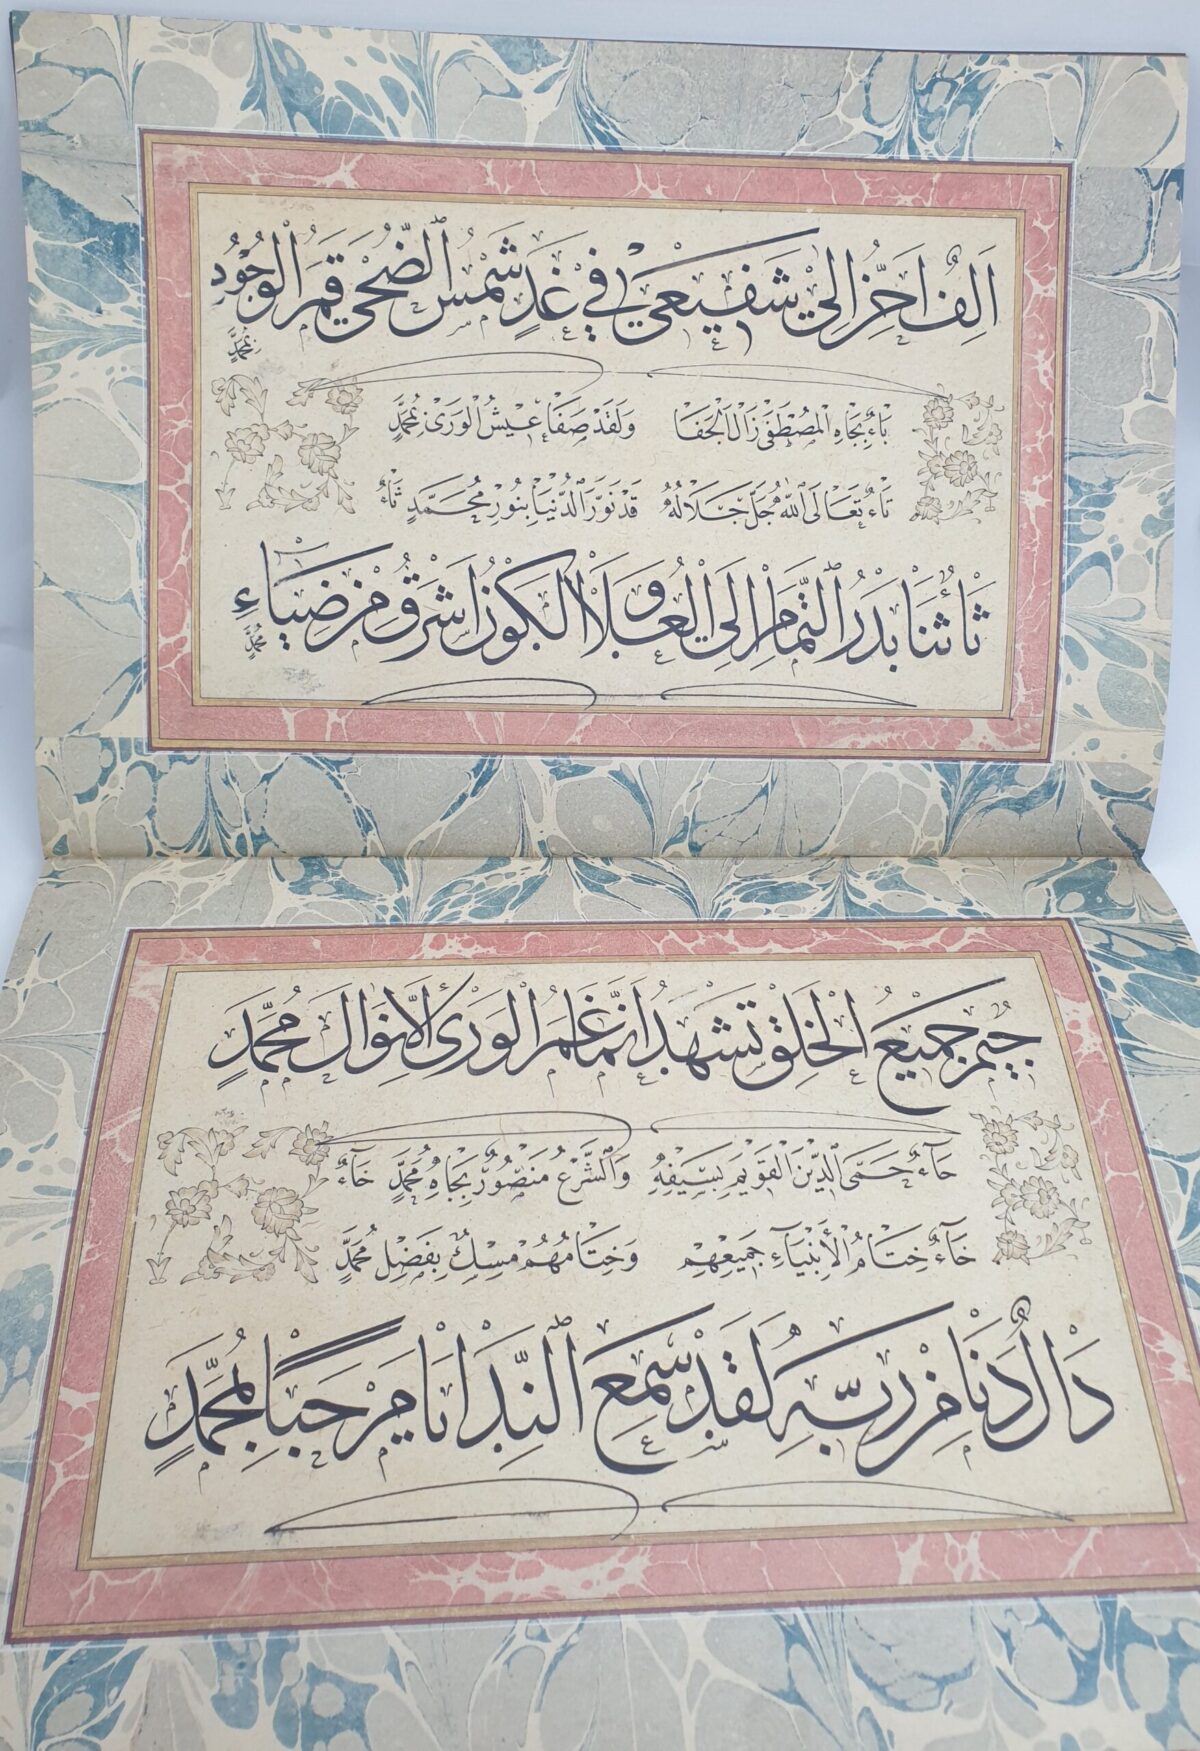 اَلِفُ اَحِنُّ اِلٰى شَفٖيعٖى فٖى غَدٍ شَمْسِ الضُّحٰى قَمَرُ الْوُجُودِ مُحَمَّدٍ
بَاءٌ بِجَاهِ الْمُصْطَفٰى زَالَ الْجَفَا وَلَقَدْ صَفَا عَيْشُ الْوَرٰى بِمُحَمَّدٍ
تَاءٌ تَعَالَى اللّٰهُ جَلَّ جَلَالُهُ قَدْ نَوَّرَ الدُّنْيَا بِنُورِ مُحَمَّدٍ ثَاءٌ
ثَا ثَنَا بَدْرُ التَّمَامِ اِلَى الْعُلَا وَالْكَوْنُ اَشْرَقُ مِنْ ضِيَاءِ مُحَمَّدٍ
جٖيمُ جَمٖيعُ الْخَلْقِ تَشْهَدُ اَنَّمَا عَمَّ الْوَرٰى اِلَّا نَوَالُ مُحَمَّدٍ
حَاءٌ حَمَى الدّٖينَ الْقَوٖيمَ بِسَيْفِهٖ وَالشَّرْعُ مَنْصُورٌ بِجَاهِ مُحَمَّدٍ خَاءٌ
خَاءٌ خِتَامُ الْأَنْبِيَاءِ جَمٖيعِهِمْ وَخِتَامُهُمْ مِسْكٌ بِفَضْلِ مُحَمَّدٍ
دَالُ دَنَا مِنْ رَبِّهٖ لَقَدْ سَمِعَ النِّدَا اَنَا يَا مَرْحَبًا بِمُحَمَّدٍ